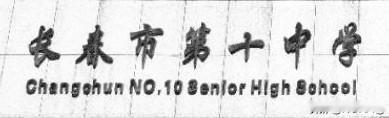 长春市第十中学
Changchun NO.10 Senior High School